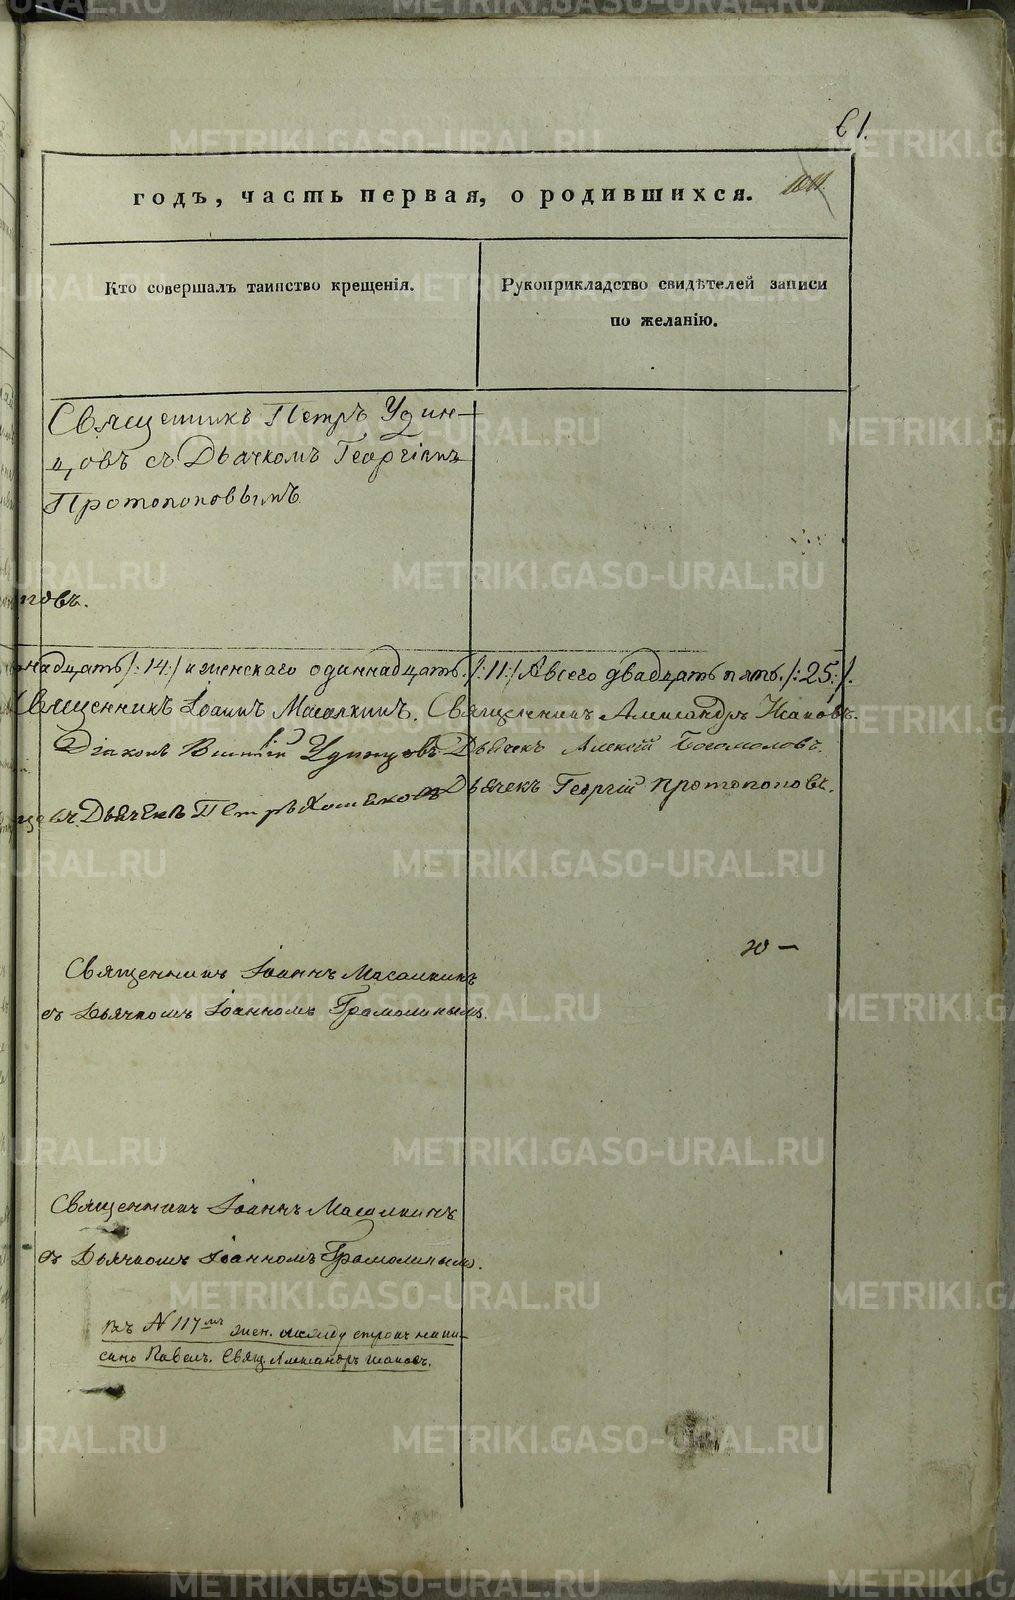 61.
годъ, часть первая, о родившихся.
Кто совершалъ таинство крещенія.
Рукоприкладство свидѣтелей записи
по желанію.
Священникъ Петръ Удин-
цовъ съ Дьячкомъ Георгіемъ
Протопоповымъ
повъ.
надцать /:14:/ и женскаго одиннадцать /:11:/ А всего двадцать пять. /:25:/.
Священникъ Іоаннъ Масалкинъ. Священникъ Александръ Исаковъ.
Діаконъ Удинцовъ Дьячекъ Алексій Богомоловъ.
Дьячекъ Петръ Хомяковъ Дьячекъ Георгій Протопоповъ.
Священникъ Іоаннъ Масалкинъ
съ Дьячкомъ Іоанномъ Грамолинымъ.
Священникъ Іоаннъ Масалкинъ
съ Дьячкомъ Іоанномъ Грамолинымъ.
Въ № 117мъ жен. между строкъ напи-
сано Павелъ. Свящ. Александръ Исаковъ.
METRIKI.GASO-URAL.RU